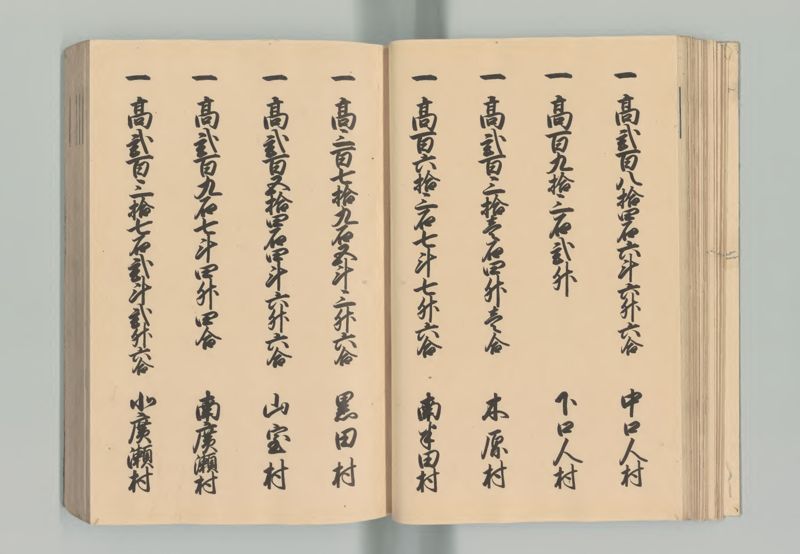 一 高弐百八拾四石六斗六升六合 中口人村
一 高百九拾三石弐升 下口人村
一 高弐百三拾壱石四升壱合 木原村
一 高百六拾三石七斗七升六合 南半田村
一 高三百七拾九石五斗三升六合 黒田村
一 高弐百五拾四石四斗六升六合 山室村
一 高弐百九石七斗四升四合 南廣瀬村
一 高弐百三拾七石弐斗弐升六合 北廣瀬村